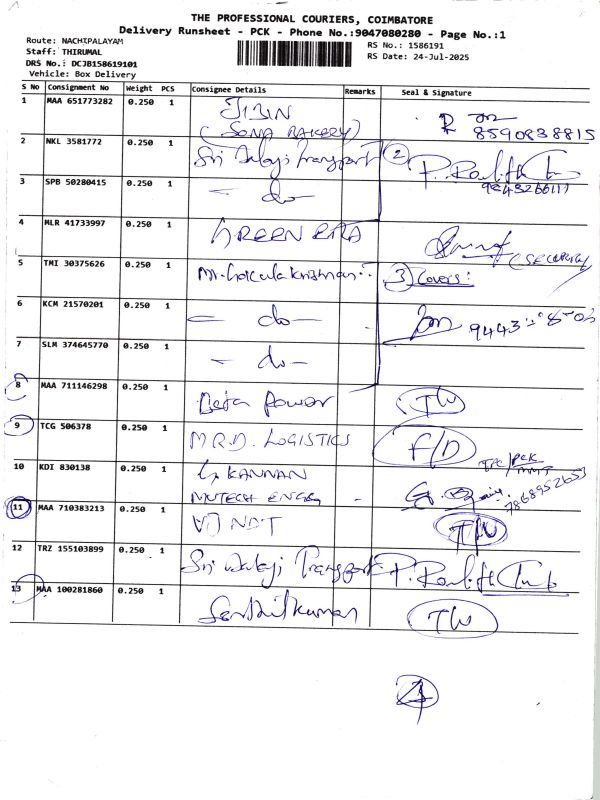 THE PROFESSIONAL COURIERS, COIMBATORE
Delivery Runsheet - PCK - Phone No.:9047080280 - Page No.:1
Route: NACHIPALAYAM
RS No.: 1586191
Staff: THIRUMAL
RS Date: 24-Jul-2025
DRS No.: DCJB158619101
Vehicle: Box Delivery
S No Consignment No Weight PCS Consignee Details Remarks Seal & Signature
1 MAA 651773282 0.250 1 JIBIN
(SONA BAKERY) 8590838815
2 NKL 3581772 0.250 1 Sri Balaji Transport 2
3 SPB 50280415 0.250 1 - do - 9843266111
4 MLR 41733997 0.250 1 GREEN ERA (SECURITY)
5 TMI 30375626 0.250 1 Mr. Gokulakrishnan 3 Covers:
6 KCM 21570201 0.250 1 - do -
7 SLM 374645770 0.250 1 - do -
8 MAA 711146298 0.250 1 Beta Power
9 TCG 506378 0.250 1 M.R.D. LOGISTICS F/D
10 KDI 830138 0.250 1 G. KANNAN
MUTECH ENGG - 7868952653
11 MAA 710383213 0.250 1 VJ NDT
12 TRZ 155103899 0.250 1 Sri Balaji Transport
13 MAA 100281860 0.250 1 Senthilkumar